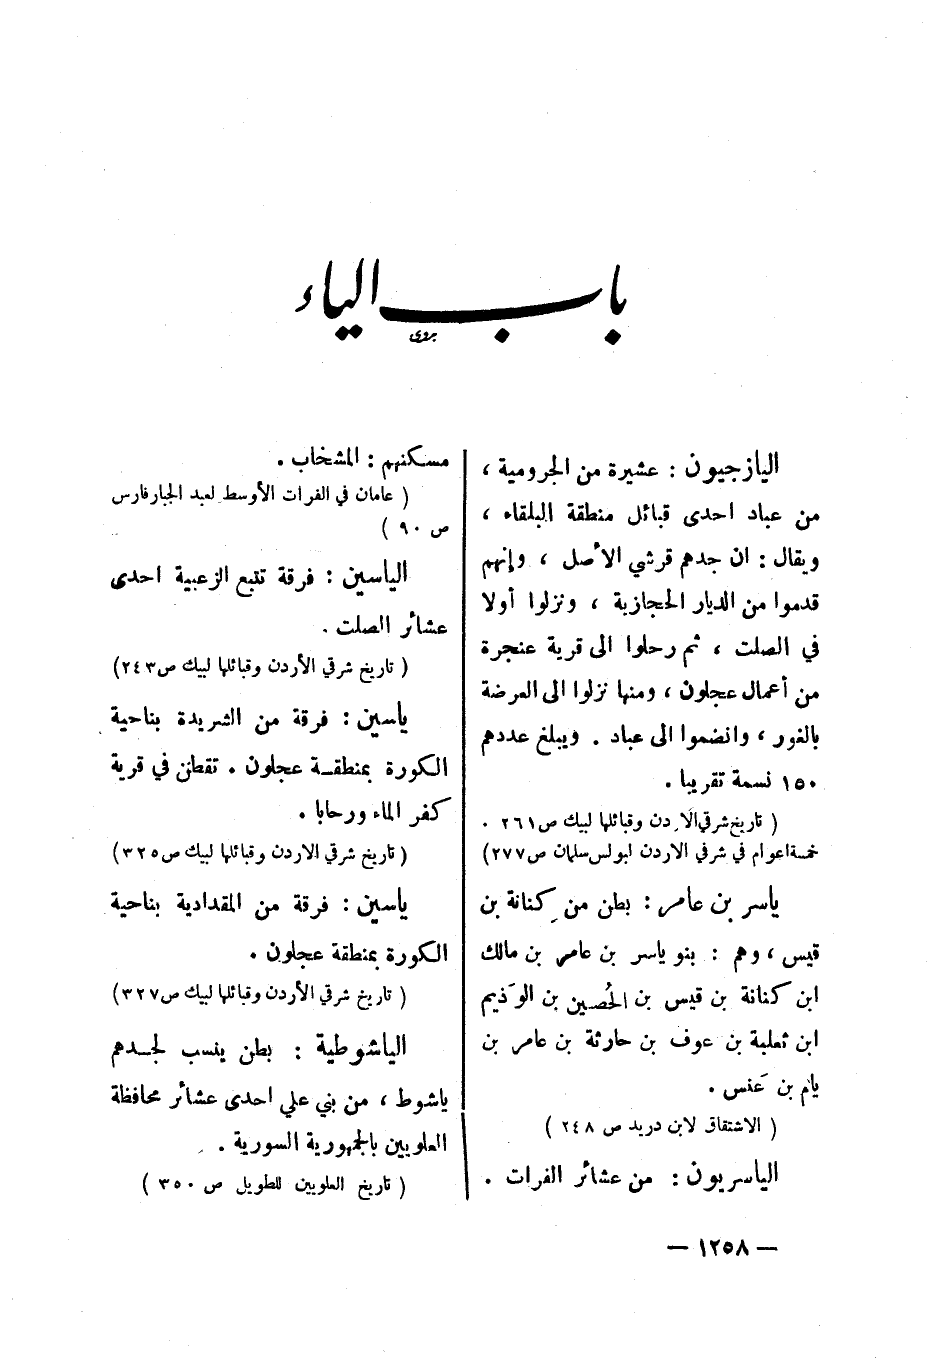 باب الياء
اليازجيون : عشيرة من الجرومية ،
من عباد احدى قبائل منطقة البلقاء ،
ويقال : ان جدهم قرشي الأصل ، وإنهم
قدموا من الديار الحجازية ، ونزلوا أولا
في الصلت ، ثم رحلوا الى قرية عنجرة
من أعمال عجلون ، ومنها نزلوا الى العرضة
بالغور ، وانضموا الى عباد . ويبلغ عددهم
١٥٠ نسمة تقريبا .
( تاريخ شرقي الاردن وقبائلها لبيك ص ٢٦١ .
خمسة اعوام في شرقي الاردن لبولس سلمان ص ٢٧٧)
ياسر بن عامر : بطن من كنانة بن
قيس ، وهم : بنو ياسر بن عامر بن مالك
ابن كنانة بن قيس بن الحُصين بن الوَذيم
ابن ثعلبة بن عوف بن حارثة بن عامر بن
يام بن عَنس .
( الاشتقاق لابن دريد ص ٢٤٨ )
الياسريون : من عشائر الفرات .
مسكنهم : المشخاب .
( عامان في الفرات الأوسط لعبد الجبار فارس
ص ٩٠ )
الياسين : فرقة تتبع الزعبية احدى
عشائر الصلت .
( تاريخ شرقي الأردن وقبائلها لبيك ص ٢٤٣)
ياسين : فرقة من الشريدة بناحية
الكورة بمنطقة عجلون . تقطن في قرية
كفر الماء ورحابا .
( تاريخ شرقي الاردن وقبائلها لبيك ص ٣٢٥)
ياسين : فرقة من المقدادية بناحية
الكورة بمنطقة عجلون .
( تاريخ شرقي الأردن وقبائلها لبيك ص ٣٢٧)
الياشوطية : بطن ينسب لجدهم
ياشوط ، من بني علي احدى عشائر محافظة
العلويين بالجمهورية السورية .
( تاريخ العلويين للطويل ص ٣٥٠ )
— ١٢٥٨ —